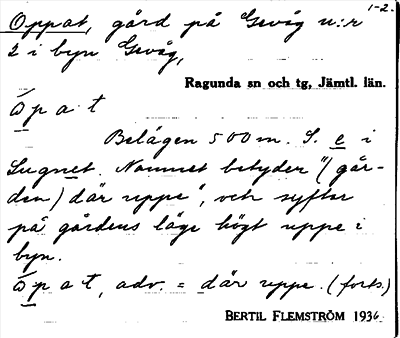 1-2.
Oppat, gård på Gevåg n:r
2 i byn Gevåg,
Ragunda sn och tg, Jämtl. län.
ώ p a t
Belägen 500 m. S. e i
Lugnet. Namnet betyder "(går-
den) där uppe", och syftar
på gårdens läge högt uppe i
byn.
ώ p a t, adv. = där uppe. (forts.)
BERTIL FLEMSTRÖM 1936